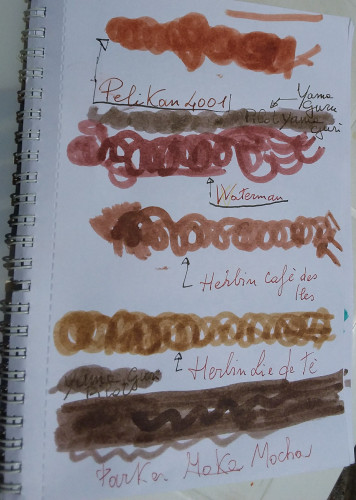 Pelikan 4001
Yama
Guri
Pilot Yama
guri
Waterman
Herbin café des
Iles
Herbin Lie de Té
Yama Guri
Pilot
Parker Moka Mocha